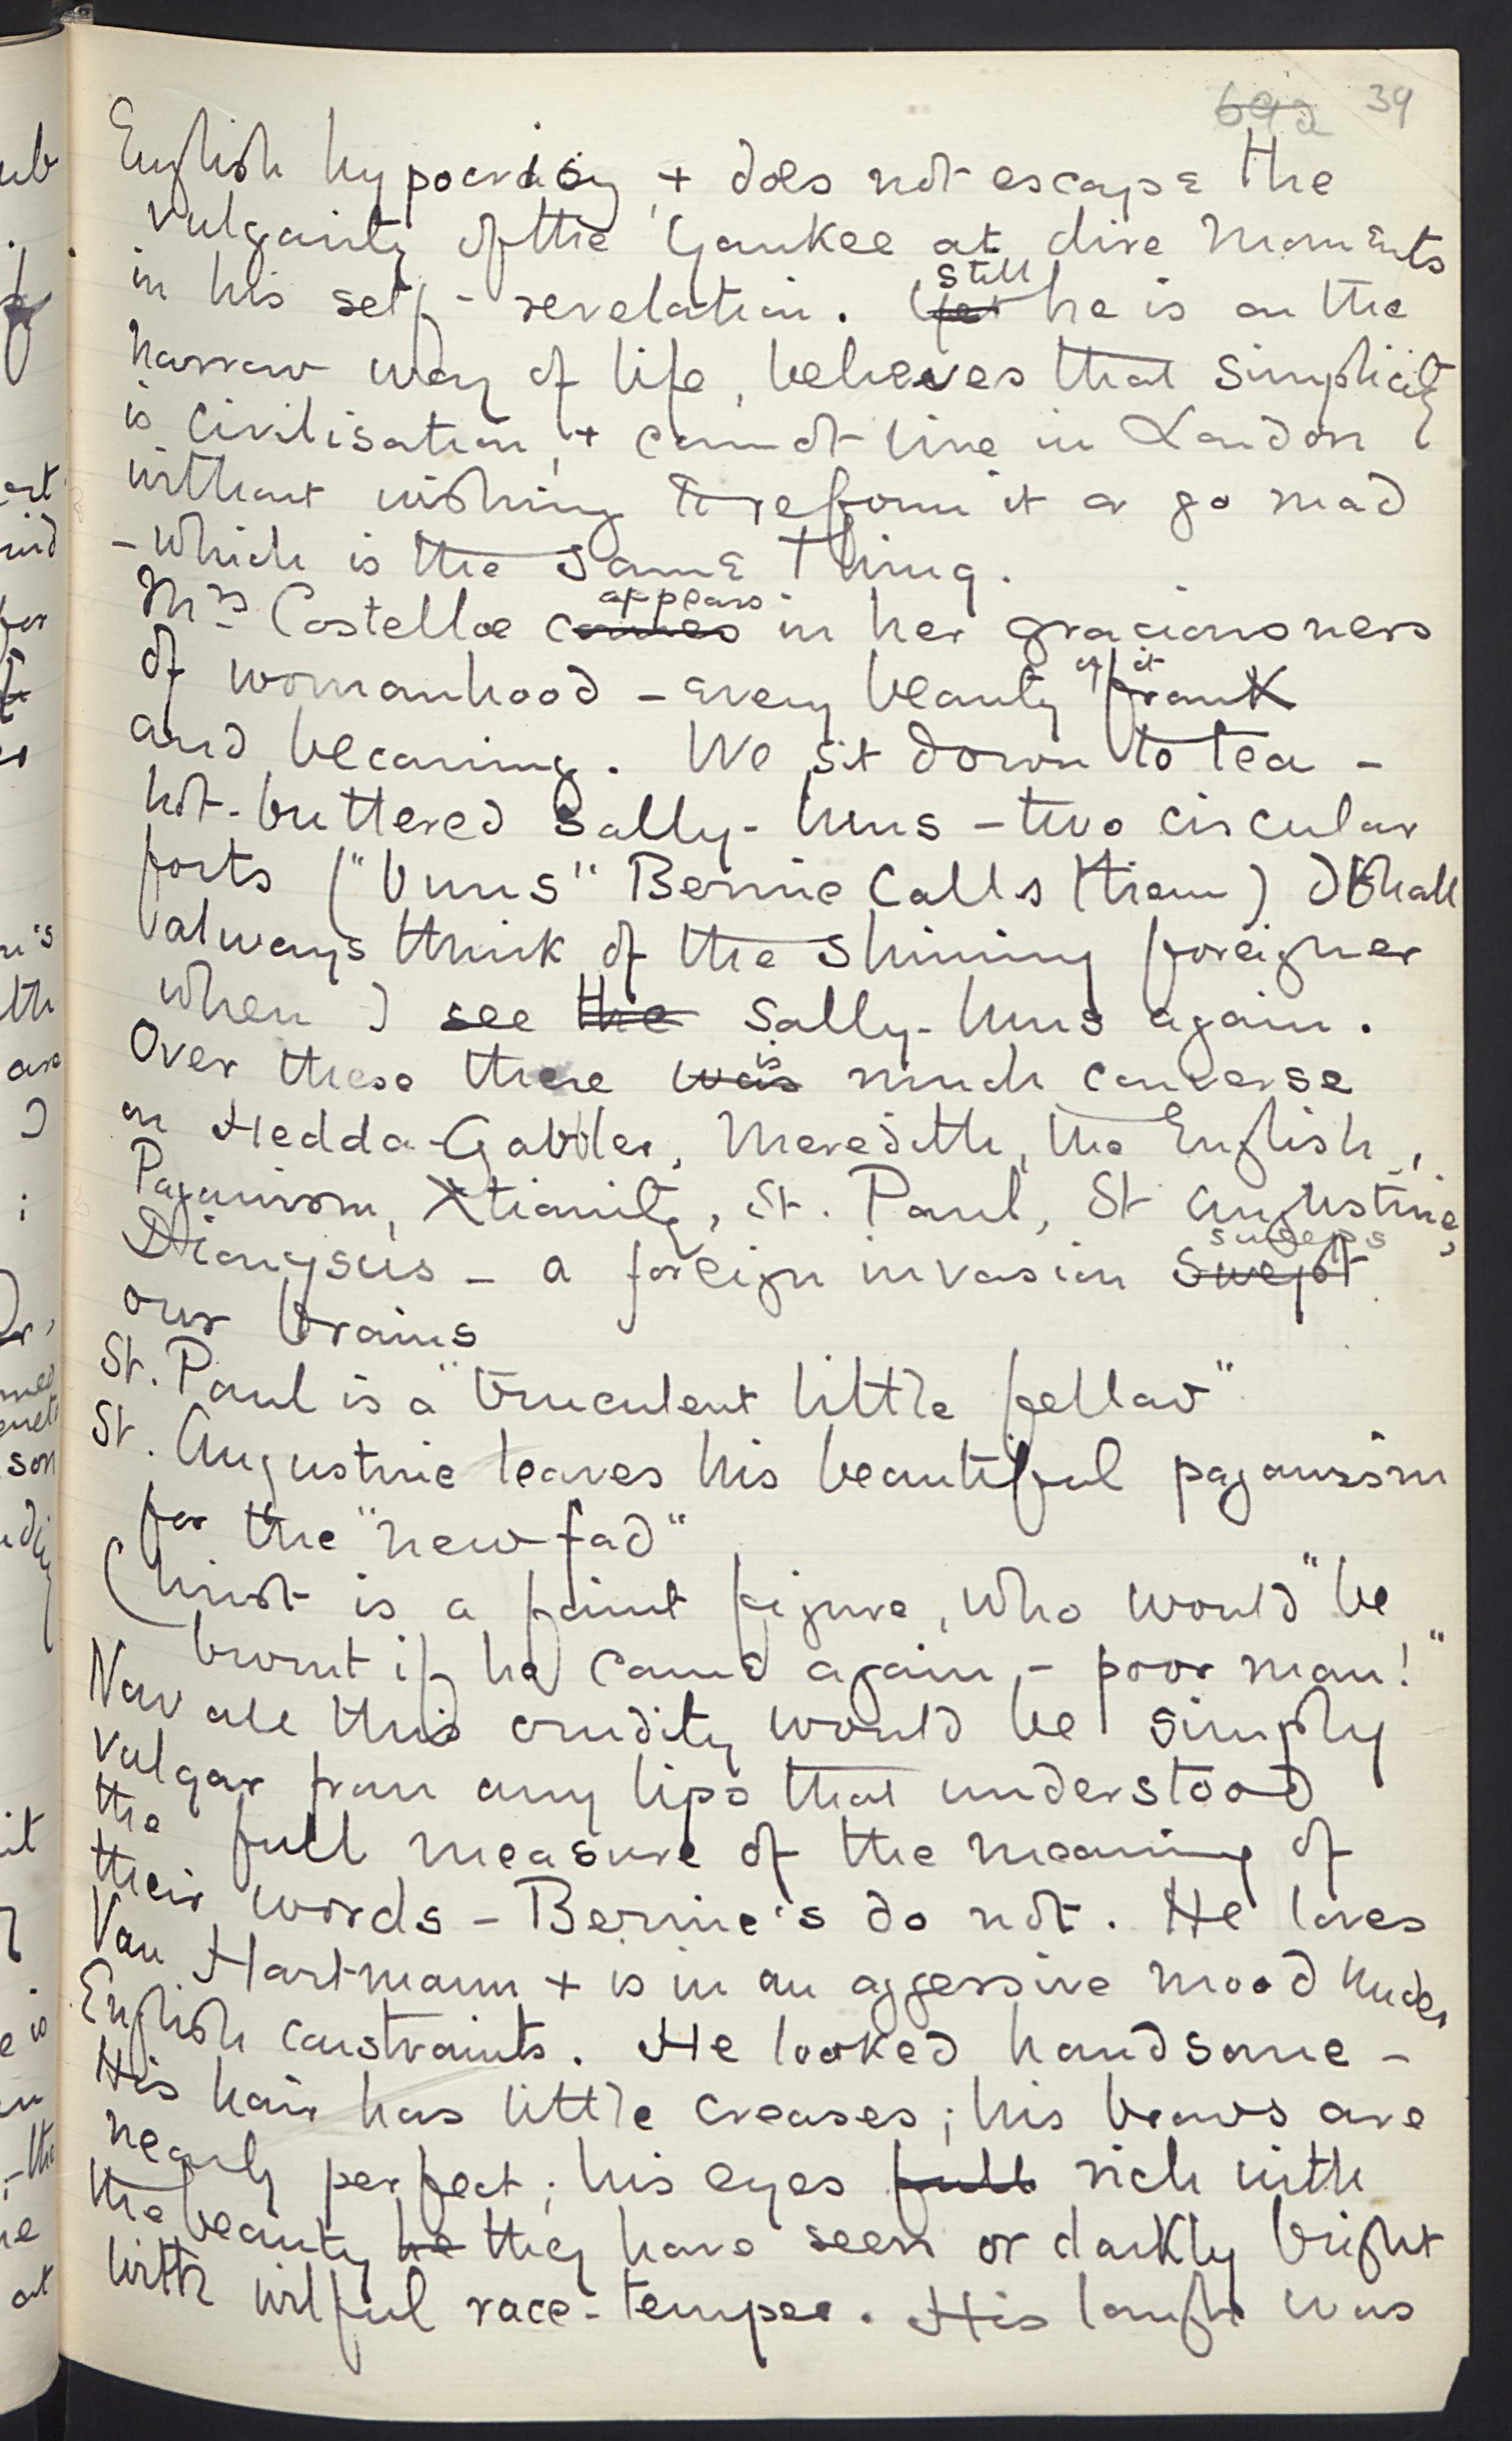 692 39
English hypocrisy, + does not escape the
vulgarity of the Yankee at dire moments
in his self-revelation. Yet still he is on the
narrow way of life, believes that simplicity
is civilisation, + cannot live in London
without wishing to reform it or go mad
- which is the same thing.
Mrs Costelloe comes appears in her graciousness
of womanhood - every beauty of it frank
and becoming. We sit down to tea -
hot-buttered Sally-luns - two circular
forts ("buns" Bernie calls them) I shall
always think of the shining foreigner
when I see the Sally-luns again.
Over these there was is much converse
on Hedda-Gabbler, Meredith, the English,
Paganism, Xtianity, St. Paul, St Augustine,
Dionysus - a foreign invasion swept sweeps
our brains
St. Paul is a "truculent little fellow"
St. Augustine leaves his beautiful paganism
for the "new fad"
Christ is a faint figure, who would "be
burnt if he came again, - poor man!"
Now all this crudity would be simply
vulgar from any lips that understood
the full measure of the meaning of
their words - Bernie's do not. He loves
Von Hartmann + is in an aggessive mood under
English constraints. He looked handsome -
His hair has little creases; his brows are
nearly perfect; his eyes full rich with
the beauty he they have seen or darkly bright
with wilful race-temper. His laugh was